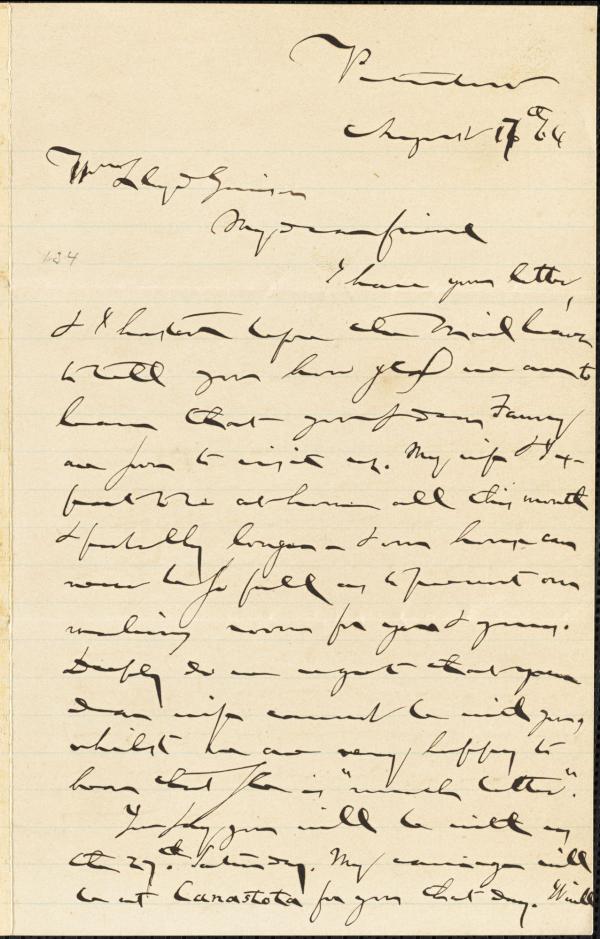 Peterboro
August 17th 64
Wm Lloyd Garrison
My dear friend
134
I have your letter,
& I hasten before the Mail leaves
to tell you how glad we are to
learn that you & dear Fanny
are soon to visit us. My wife & I ex-
pect to be at home all this month
& probably longer - & our house can
never be so full as to prevent our
making room for you & yours.
Deeply do we regret that your
dear wife cannot be with you,
whilst we are very happy to
learn that she is "much better".
You say you will be with us
the 27th. Saturday. My carriage will
be at Canastota for you that day. Will